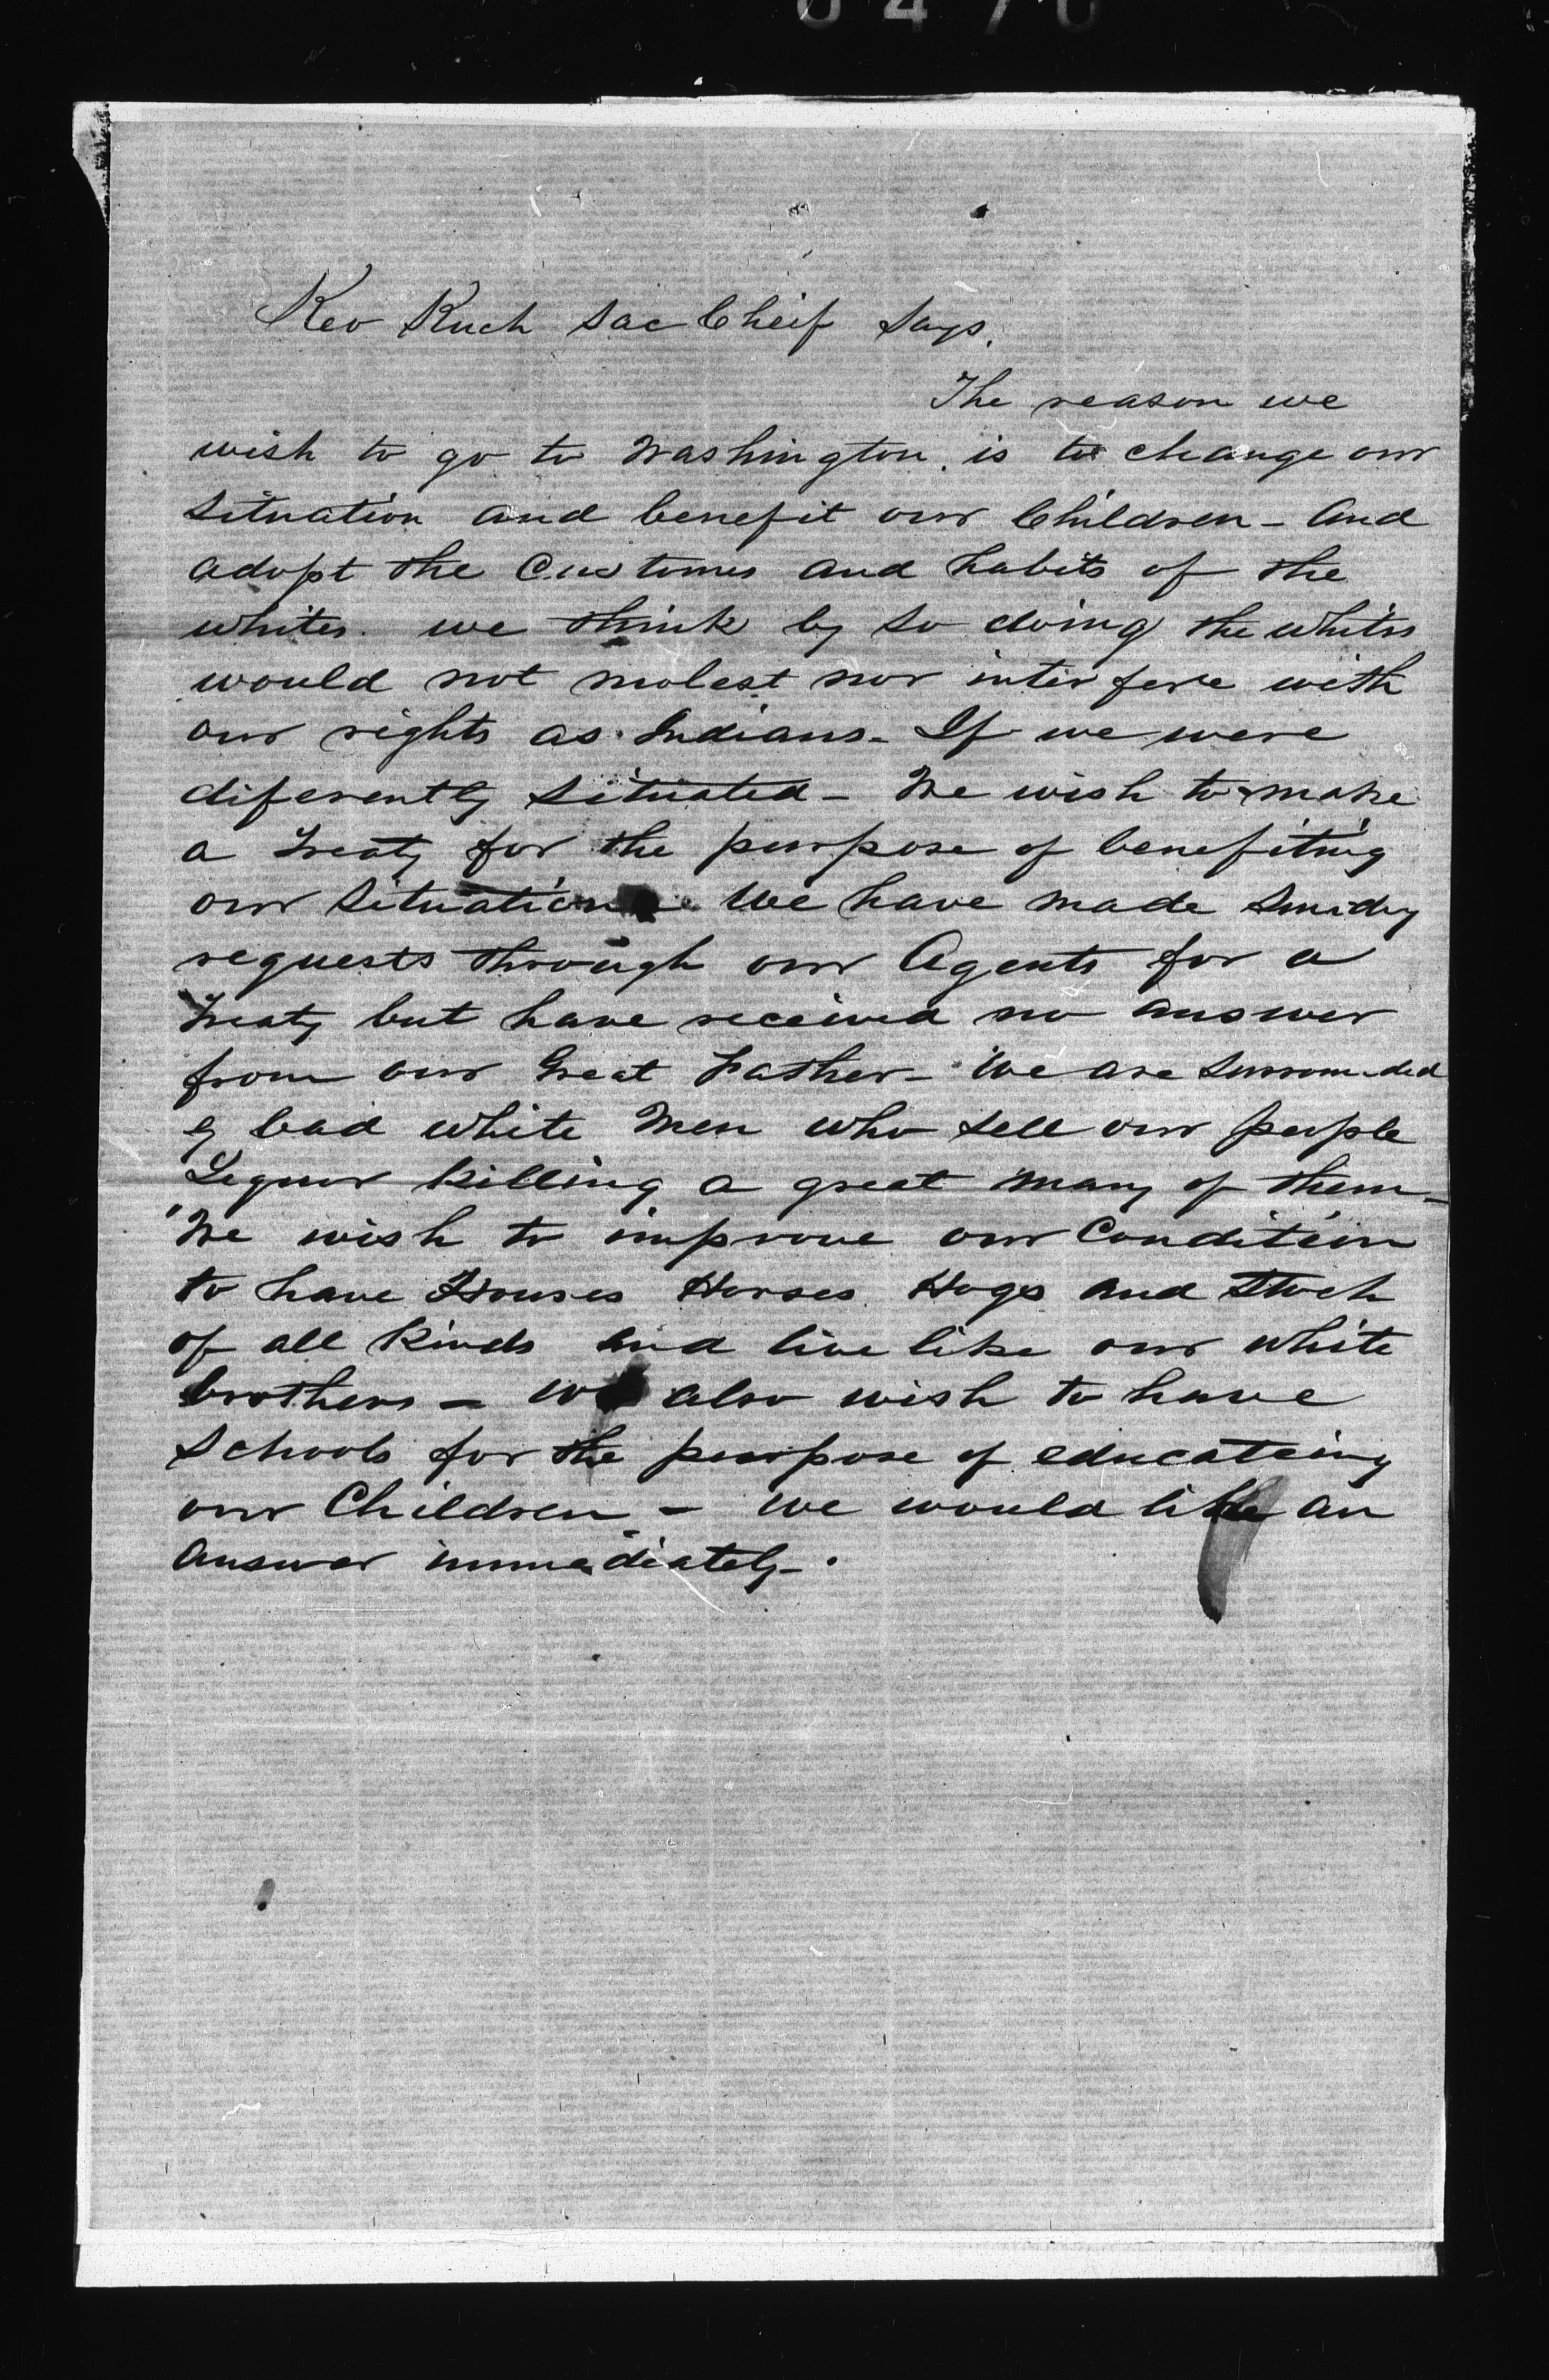 Keo Kuck Sac Cheif Says.
The reason we
wish to go to Washington. is to change our
Situation and benefit our Children - And
adopt the Customes and habits of the
whites. we think by So doing the whites
would not molest nor interfere with
our rights as Indians - If we were
diferently Situated - We wish to make
a Treaty for the purpose of benefiting
our Situation We have made Sundry
requests through our Agents for a
Treaty but have received no answer
from our Great Father - We are Surrounded
by bad white Men who Sell our people
Liquor killing a great many of them -
We wish to improve our Condition
to have Houses Horses Hogs and Stock
of all Kinds and live like our white
brothers - We also wish to have
Schools for the purpose of educateing
our Children - we would like an
Answer immediately -